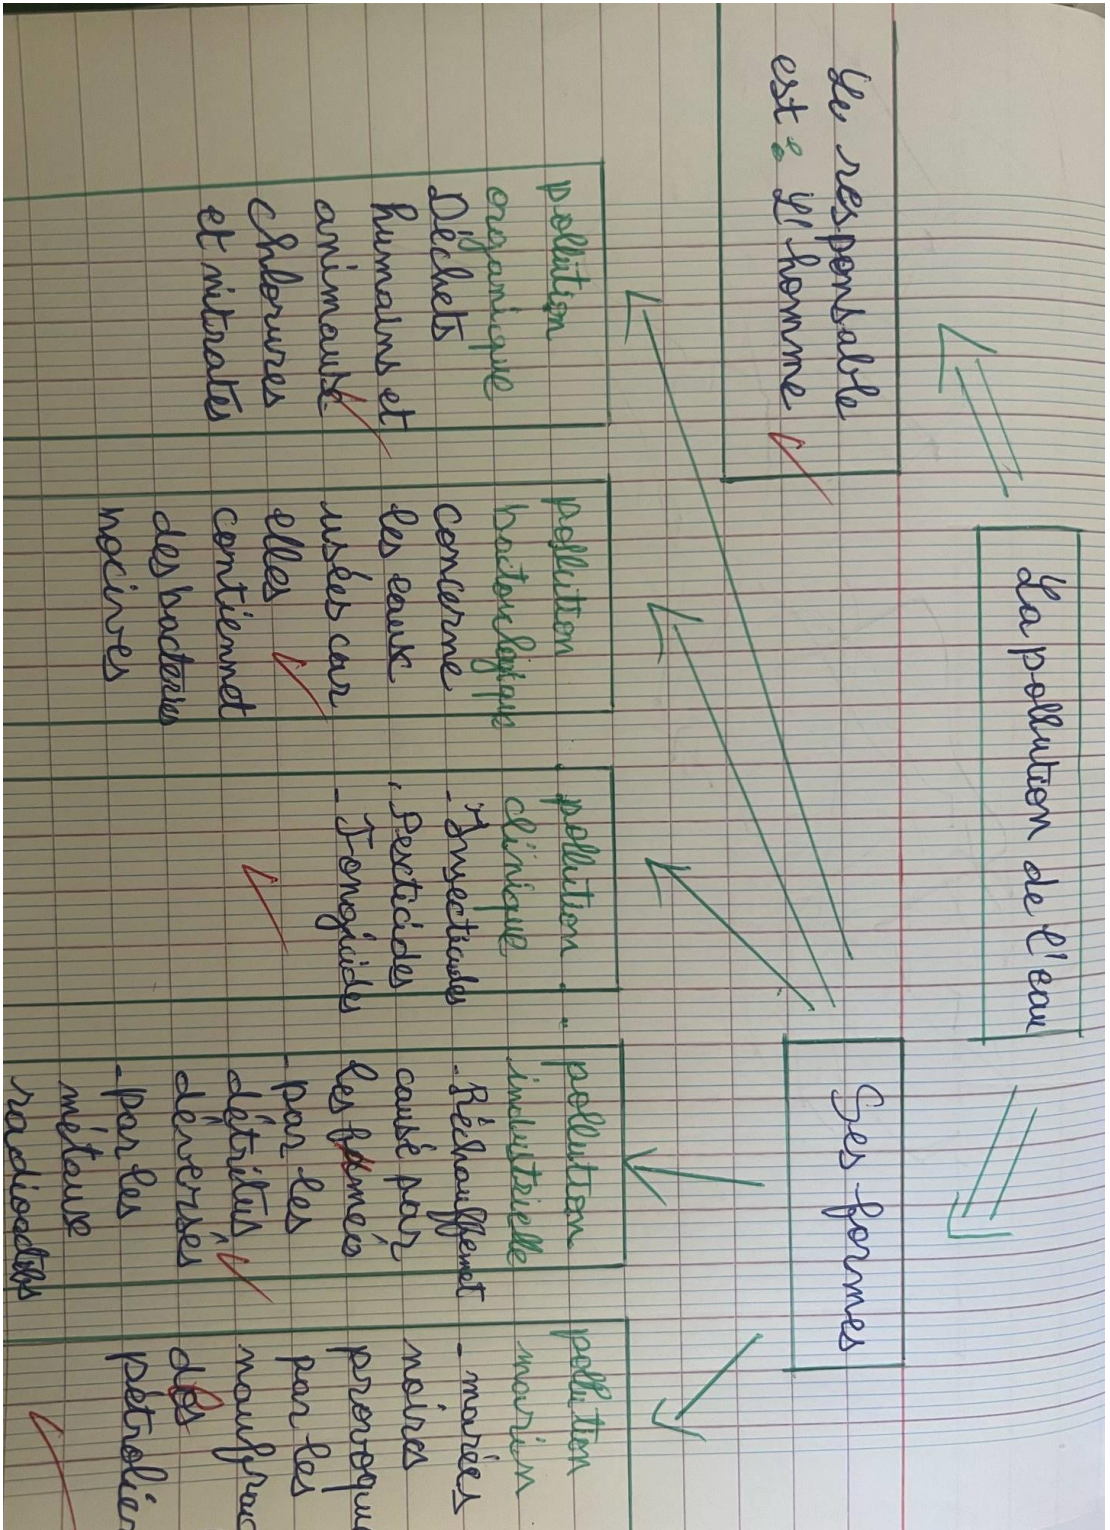 La pollution de l'eau
Le responsable
est : L'homme
Ses formes
pollution
organique
Déchets
humains et
animaux
Chlorures
et nitrates
pollution
concerne
les eaux
usées car
elles
contiennent
des bacteries
nocives
pollution
clinique
- Insecticides
- Pesticides
- Fongicides
pollution
industrielle
- Réchauffemet
causé par
les
- par les
détritus
déversés
- par les
métaux
pollution
marin
- marées
noires
par les
des